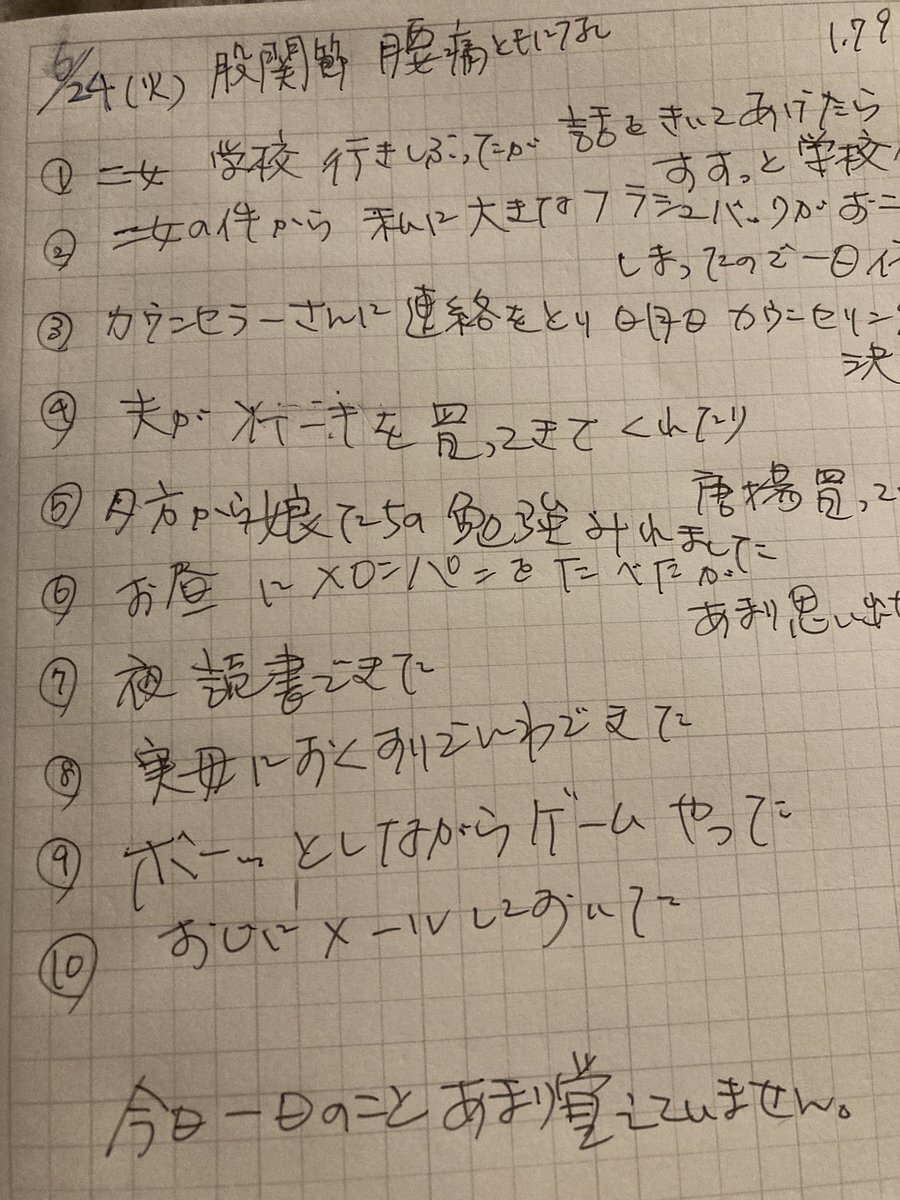 6/24(火) 股関節 腰痛ともになし 1.79
① 二女 学校 行きしぶったが 話をきいてあげたら
すすっと学校
② 二女の件から 私に大きなフラッシュバックがおこ
しまったので一日
③ カウンセラーさんに連絡をとり 明日カウンセリン
決
④ 夫が 行ってきを買ってきてくれたり
唐揚買って
⑤ 夕方から娘たちの勉強みれました
⑥ お昼にメロンパンをたべたが
あまり思い出せ
⑦ 夜 読書できた
⑧ 実母におくすりていわできた
⑨ ボーッとしながらゲームやってた
⑩ おひにメールしておいた
今日一日のことあまり覚えていません。